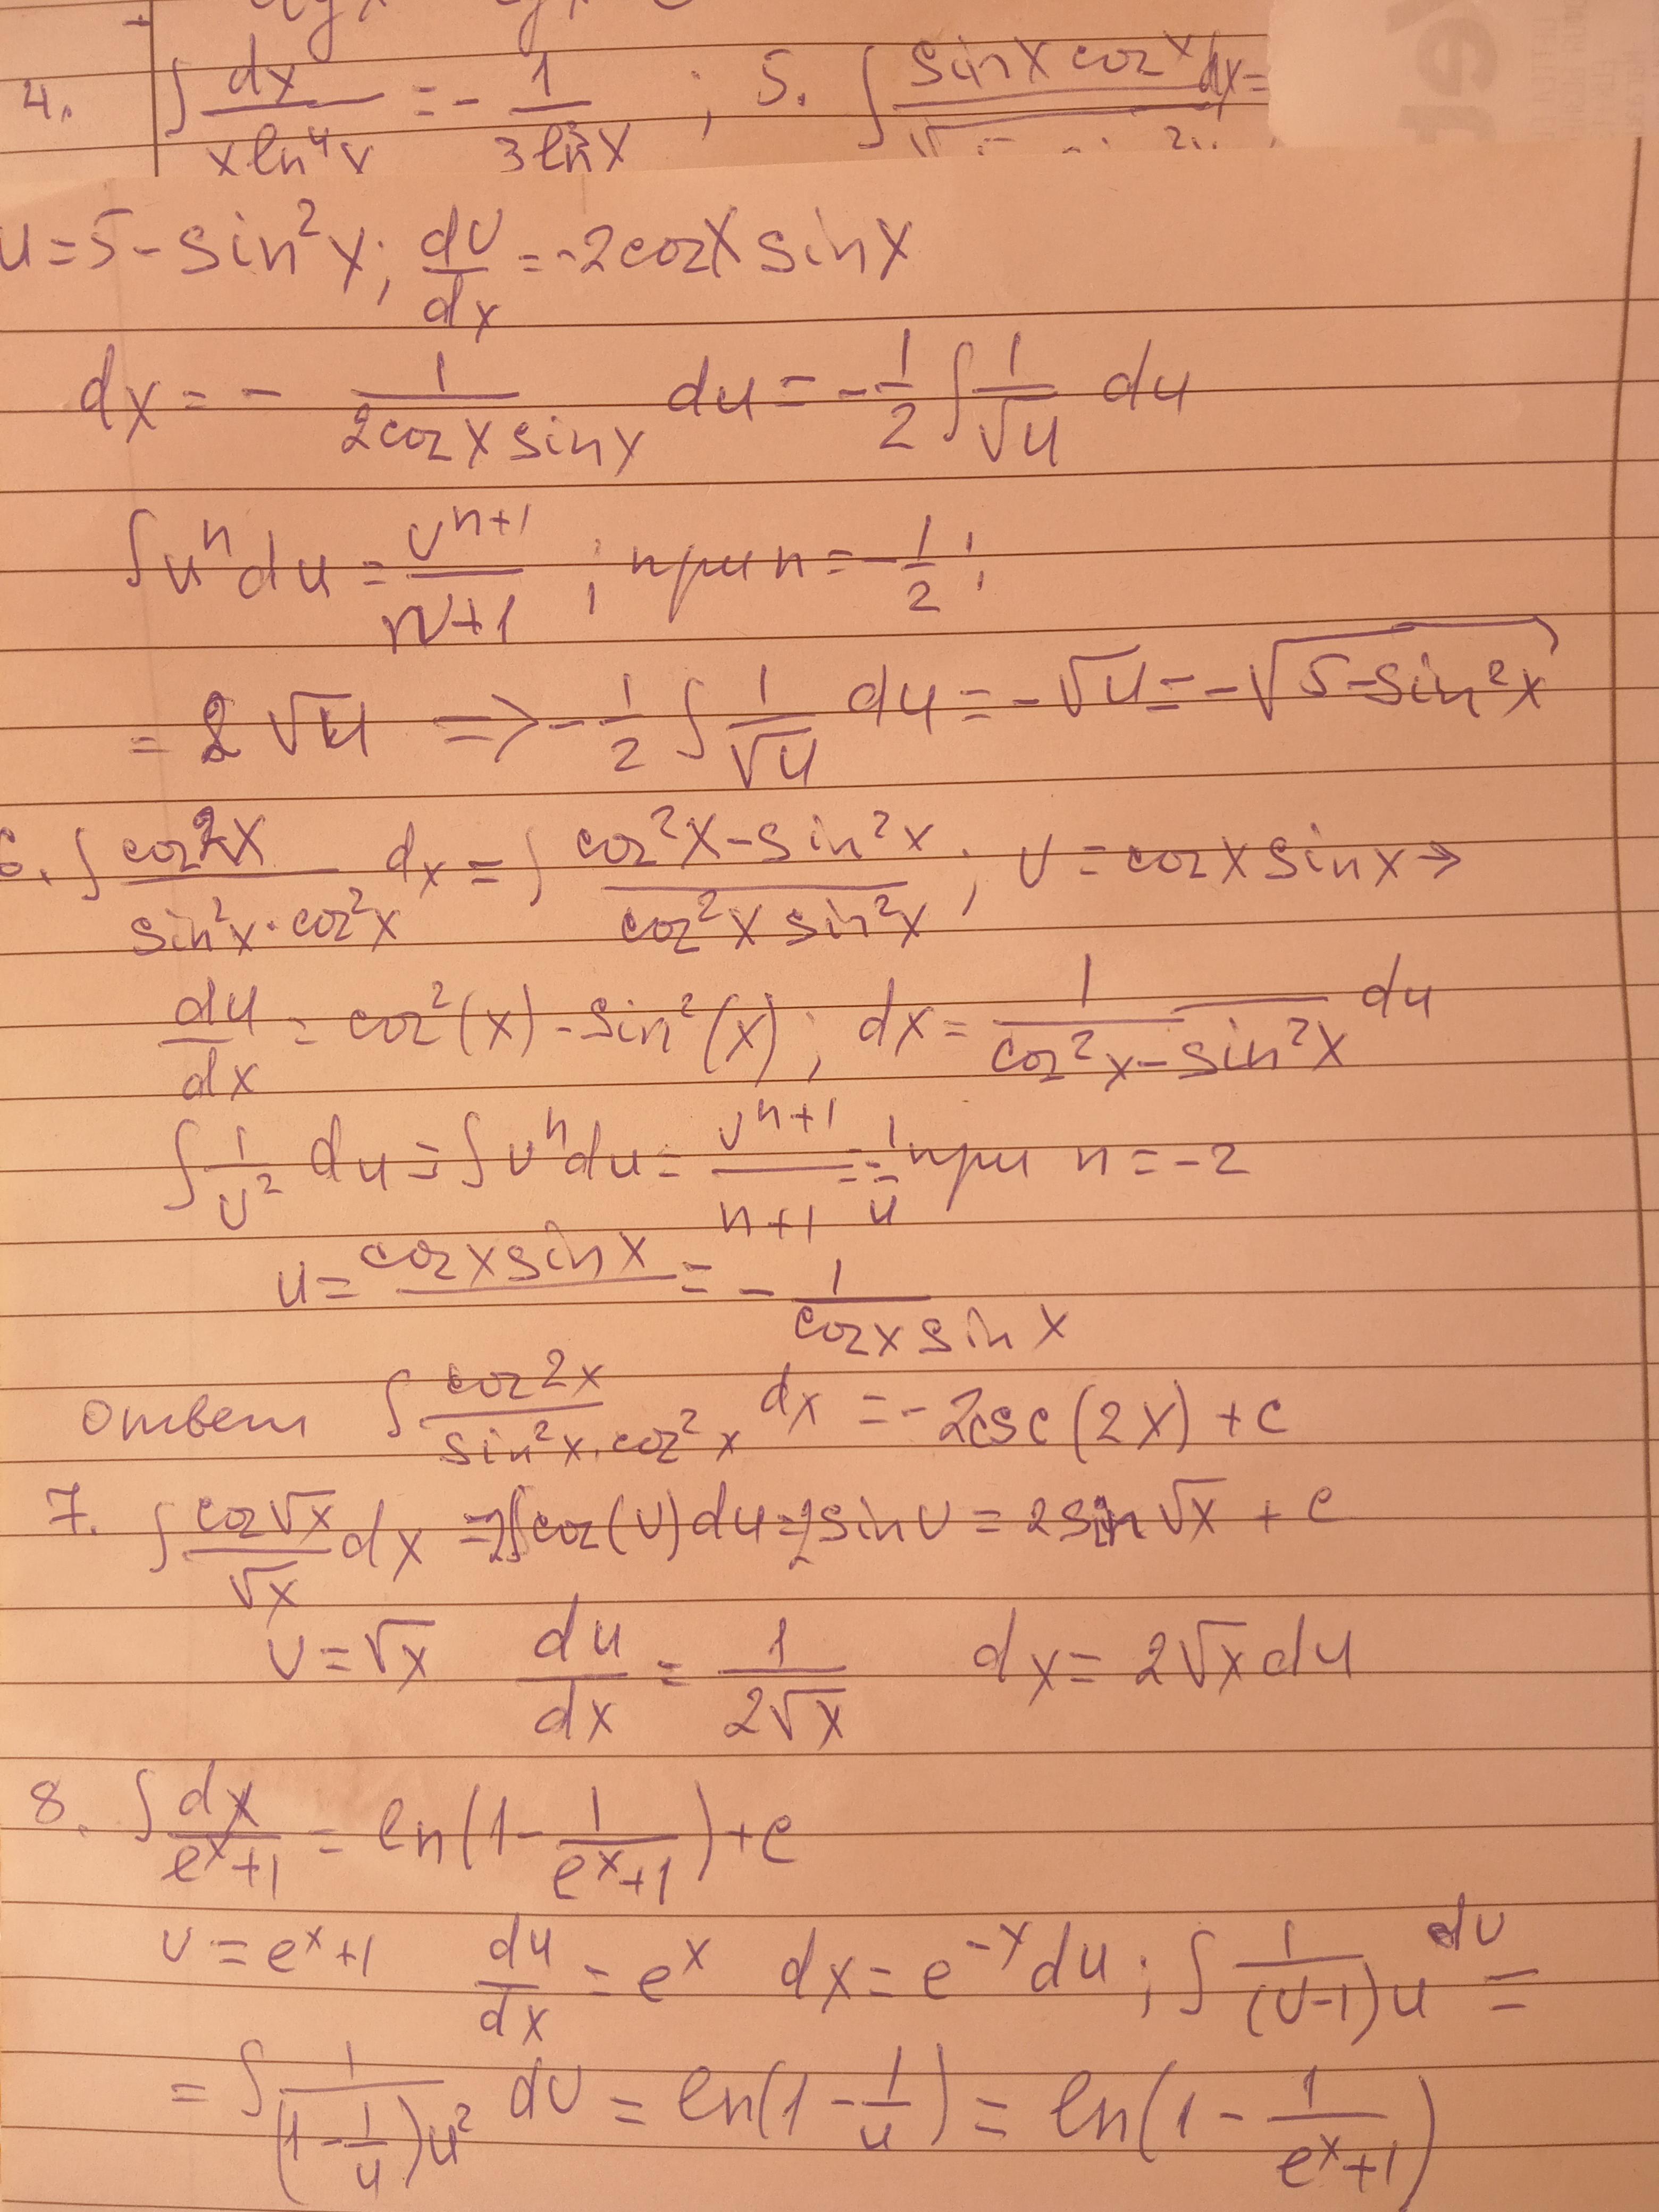 4. ∫ dx/(x ln⁴x) = - 1/(3 ln³x) ; 5. ∫ sinx cosx dx =
u = 5 - sin²x; du/dx = -2cosx sinx
dx = - 1/(2cosx sinx) du = -1/2 ∫ 1/√u du
∫uⁿdu = uⁿ⁺¹/(n+1) ; при n = -1/2;
= 2√u => -1/2 ∫ 1/√u du = -√u = -√(5-sin²x)
6. ∫ cos2x/(sin²x·cos²x) dx = ∫ (cos²x-sin²x)/(cos²x sin²x) ; u = cosx sinx →
du/dx = cos²(x) - sin²(x); dx = 1/(cos²x-sin²x) du
∫ 1/u² du = ∫uⁿdu = uⁿ⁺¹/(n+1) = -1/u при n = -2
u = cosx sinx = - 1/(cosx sinx)
ответ ∫ cos2x/(sin²x·cos²x) dx = -2csc(2x) + c
7. ∫ cos√x/√x dx = 2∫cos(u)du = 2sinu = 2sin√x + c
u = √x du/dx = 1/(2√x) dx = 2√x du
8. ∫ dx/(eˣ+1) = ln(1 - 1/(eˣ+1)) + c
u = eˣ+1 du/dx = eˣ dx = e⁻ˣdu; ∫ 1/((u-1)u) du =
= ∫ 1/((1-1/u)u²) du = ln(1-1/u) = ln(1 - 1/(eˣ+1))